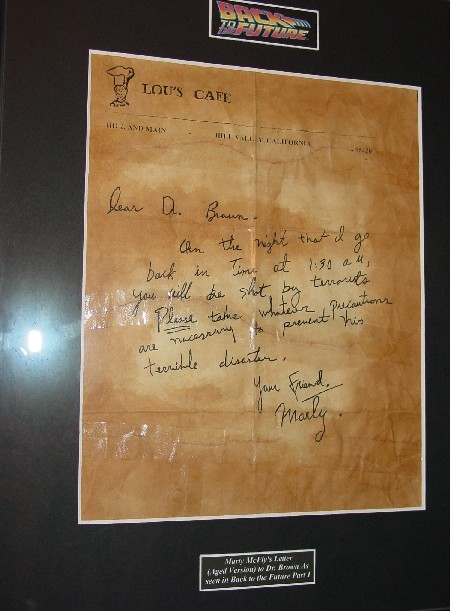 BACK
TO THE
FUTURE
LOU'S CAFE
HILL AND MAIN
HILL VALLEY, CALIFORNIA
Dear Dr. Brown.
On the night that I go
back in Time at 1:30 a.M,
you will be shot by terrorists
Please take whatever precautions
are necessary to prevent this
terrible disaster.
Your Friend.
Marty.
Marty McFly's Letter
(Aged Version) to Dr. Brown As
seen in Back to the Future Part 1